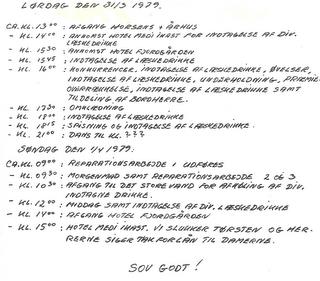 LØRDAG DEN 31/3 1979.
CA.KL. 13⁰⁰ : AFGANG HORSENS + ÅRHUS
- KL. 14⁰⁰ : ANKOMST HOTEL MEDI IKAST FOR INDTAGELSE AF DIV.
LÆSKEDRIKKE
- KL. 15³⁰ : ANKOMST HOTEL FJORDGÅRDEN
- KL. 15⁴⁵ : INDTAGELSE AF LÆSKEDRIKKE
- KL. 16⁰⁰ : KONKURRENCER, INDTAGELSE AF LÆSKEDRIKKE, ØVELSER,
INDTAGELSE AF LÆSKEDRIKKE, UNDERHOLDNING, PRÆMIE
OVERRÆKKELSE, INDTAGELSE AF LÆSKEDRIKKE SAMT
TILDELING AF BORDHERRE.
- KL. 17³⁰ : OMKLÆDNING
- KL. 18⁰⁰ : INDTAGELSE AF LÆSKEDRIKKE
- KL. 18¹⁵ : SPISNING OG INDTAGELSE AF LÆSKEDRIKKE.
- KL. 21⁰⁰ : DANS TIL KL. ? ? ?
SØNDAG DEN 1/4 1979:
CA.KL. 09⁰⁰ : REPARATIONSARBEJDE 1 UDFØRES
- KL. 09³⁰ : MORGENMAD SAMT REPARATIONSARBEJDE 2 OG 3
- KL. 10³⁰ : AFGANG TIL DET STORE VAND FOR AFKØLING AF DIV.
INDTAGNE DRIKKE.
- KL. 12⁰⁰ : MIDDAG SAMT INDTAGELSE AF DIV. LÆSKEDRIKKE
- KL. 14⁰⁰ : AFGANG HOTEL FJORDGÅRDEN
- KL. 15⁰⁰ : HOTEL MEDI IKAST. VI SLUKKER TØRSTEN OG HER-
RERNE SIGER TAK FOR LÅN TIL DAMERNE.
SOV GODT!